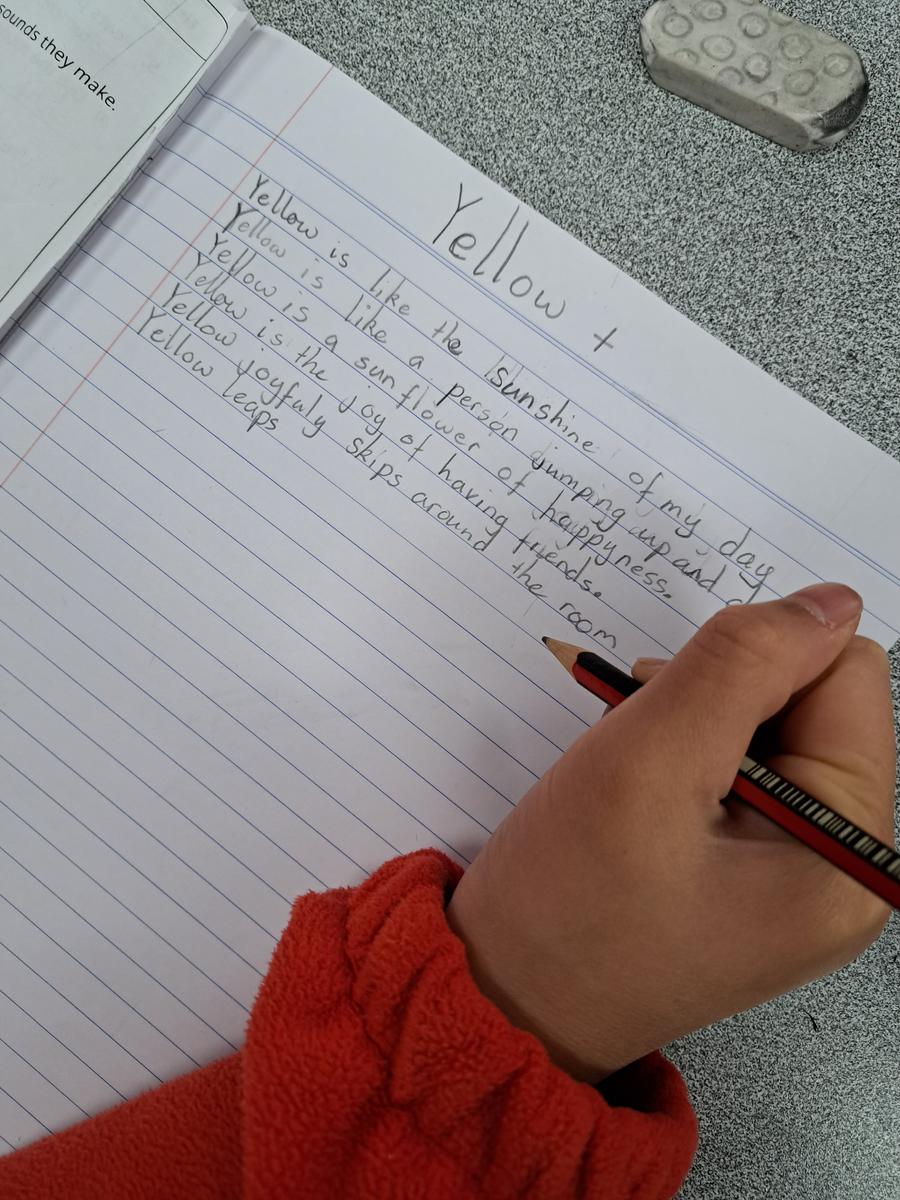 sounds they make.
Yellow +
Yellow is like the sunshine of my day
Yellow is like a person jumping up and
Yellow is a sunflower of happyness.
Yellow is the joy of having friends.
Yellow joyfuly skips around the room
Yellow leaps